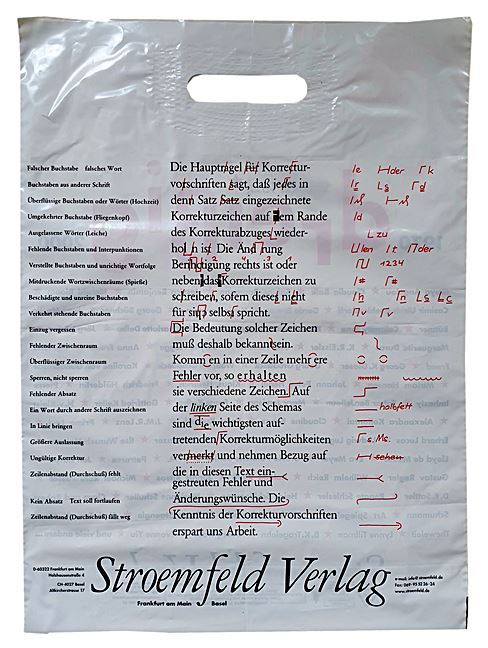 Die Hauptragel für Korrectur-
Falscher Buchstabe falsches Wort
vorschriften sagt, daß jedes in
Buchstaben aus anderer Schrift
denn Satz Satz eingezeichnete
Überflüssige Buchstaben oder Wörter (Hochzeit)
Korrekturzeichen auf dem Rande
Umgekehrter Buchstabe (Fliegenkopf)
des Korrekturabzuges wieder-
Ausgelassene Wörter (Leiche)
Fehlende Buchstaben und Interpunktionen
Verstellte Buchstaben und unrichtige Wortfolge
rechts ist oder
Mitdruckende Wortzwischenräume (Spieße)
neben das Korrekturzeichen zu
Beschädigte und unreine Buchstaben
schreiben, sofern dieses nicht
Verkehrt stehende Buchstaben
für sich selbst spricht.
Einzug vergessen
Die Bedeutung solcher Zeichen
Fehlender Zwischenraum
muß deshalb bekanntsein.
Überflüssiger Zwischenraum
Komm en in einer Zeile mehr ere
Sperren, nicht sperren
Fehler vor, so erhalten
Fehlender Absatz
sie verschiedene Zeichen. Auf
Ein Wort durch andere Schrift auszeichnen
der linken Seite des Schemas
halbfett
In Linie bringen
sind die wichtigsten auf-
Größere Auslassung
tretenden Korrekturmöglichkeiten
s. Ms.
Ungültige Korrektur
vermerkt und nehmen Bezug auf
sehen
Zeilenabstand (Durchschuß) fehlt
die in diesen Text ein-
gestreuten Fehler und
Kein Absatz Text soll fortlaufen
Änderungswünsche. Die
Zeilenabstand (Durchschuß) fällt weg
Kenntnis der Korrekturvorschriften
erspart uns Arbeit.
D-60322 Frankfurt am Main
Holzhausenstraße 4
CH-4027 Basel
Altkircherstrasse 17
Stroemfeld Verlag
Frankfurt am Main Basel
e-mail: info@stroemfeld.de
Fax: 069-95 52 26-24
www.stroemfeld.de